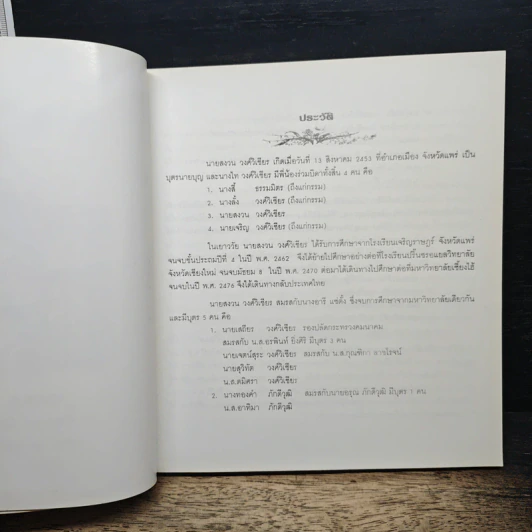 ประวัติ
นายสงวน วงศ์วิเชียร เกิดเมื่อวันที่ 13 สิงหาคม 2453 ที่อำเภอเมือง จังหวัดแพร่ เป็น
บุตรนายบุญ และนางไท วงศ์วิเชียร มีพี่น้องร่วมบิดาทั้งสิ้น 4 คน คือ
1. นางสี้ ธรรมมิตร (ถึงแก่กรรม)
2. นางลั้ง วงศ์วิเชียร (ถึงแก่กรรม)
3. นายสงวน วงศ์วิเชียร
4. นายเจริญ วงศ์วิเชียร (ถึงแก่กรรม)
ในเยาววัย นายสงวน วงศ์วิเชียร ได้รับการศึกษาจากโรงเรียนเจริญราษฎร์ จังหวัดแพร่
จนจบชั้นประถมปีที่ 4 ในปี พ.ศ. 2662 จึงได้ย้ายไปศึกษาอย่างต่อที่โรงเรียนปริ๊นซรอยแยลวิทยาลัย
จังหวัดเชียงใหม่ จนจบมัธยม 8 ในปี พ.ศ. 2470 ต่อมาได้เดินทางไปศึกษาต่อที่มหาวิทยาลัยเซี่ยงไฮ้
จนจบในปี พ.ศ. 2476 จึงได้เดินทางกลับประเทศไทย
นายสงวน วงศ์วิเชียร สมรสกับนางอารี แซ่ตั้ง ซึ่งจบการศึกษาจากมหาวิทยาลัยเดียวกัน
และมีบุตร 5 คน คือ
1. นายเสถียร วงศ์วิเชียร รองปลัดกระทรวงคมนาคม
สมรสกับ น.ต.อรพินท์ ยิ่งศิริ มีบุตร 3 คน
นายเจตน์สุระ วงศ์วิเชียร สมรสกับ น.ส.กุณฑิกา
นายสุวิทัต วงศ์วิเชียร
น.ต.ดมิศรา วงศ์วิเชียร
2. นางทองคำ ภักดีวุฒิ สมรสกับนายอรุณ ภักดีวุฒิ มีบุตร 1 คน
น.ส.อาทิมา ภักดีวุฒิ